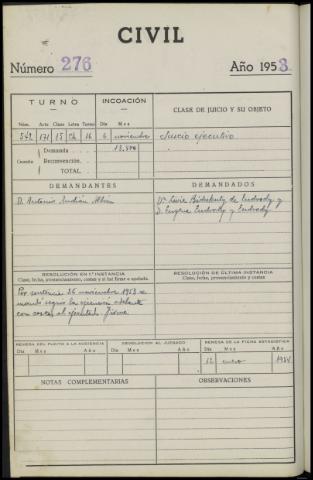 CIVIL
Número 276 Año 1953
TURNO INCOACIÓN CLASE DE JUICIO Y SU OBJETO
Núm. Acto Clase Letra Turno Día Mes
542 171 15 16 6 noviembre Juicio ejecutivo
Cuantía Demanda
Reconvención.
TOTAL.
DEMANDANTES DEMANDADOS
D. Antonio
RESOLUCIÓN EN 1ª INSTANCIA RESOLUCIÓN DE ÚLTIMA INSTANCIA
Clase, fecha, pronunciamiento, costas y si fué firme o apelada. Clase, fecha, pronunciamiento y costas.
Por sentencia 26 noviembre 1953 se
mandó seguir la ejecución adelante
con costas al ejecutado. Firme
REMESA DEL PLEITO A LA AUDIENCIA DEVOLUCIÓN AL JUZGADO REMESA DE LA FICHA ESTADÍSTICA
Día Mes Año Día Mes Año Día Mes Año
12 enero 1954
NOTAS COMPLEMENTARIAS OBSERVACIONES